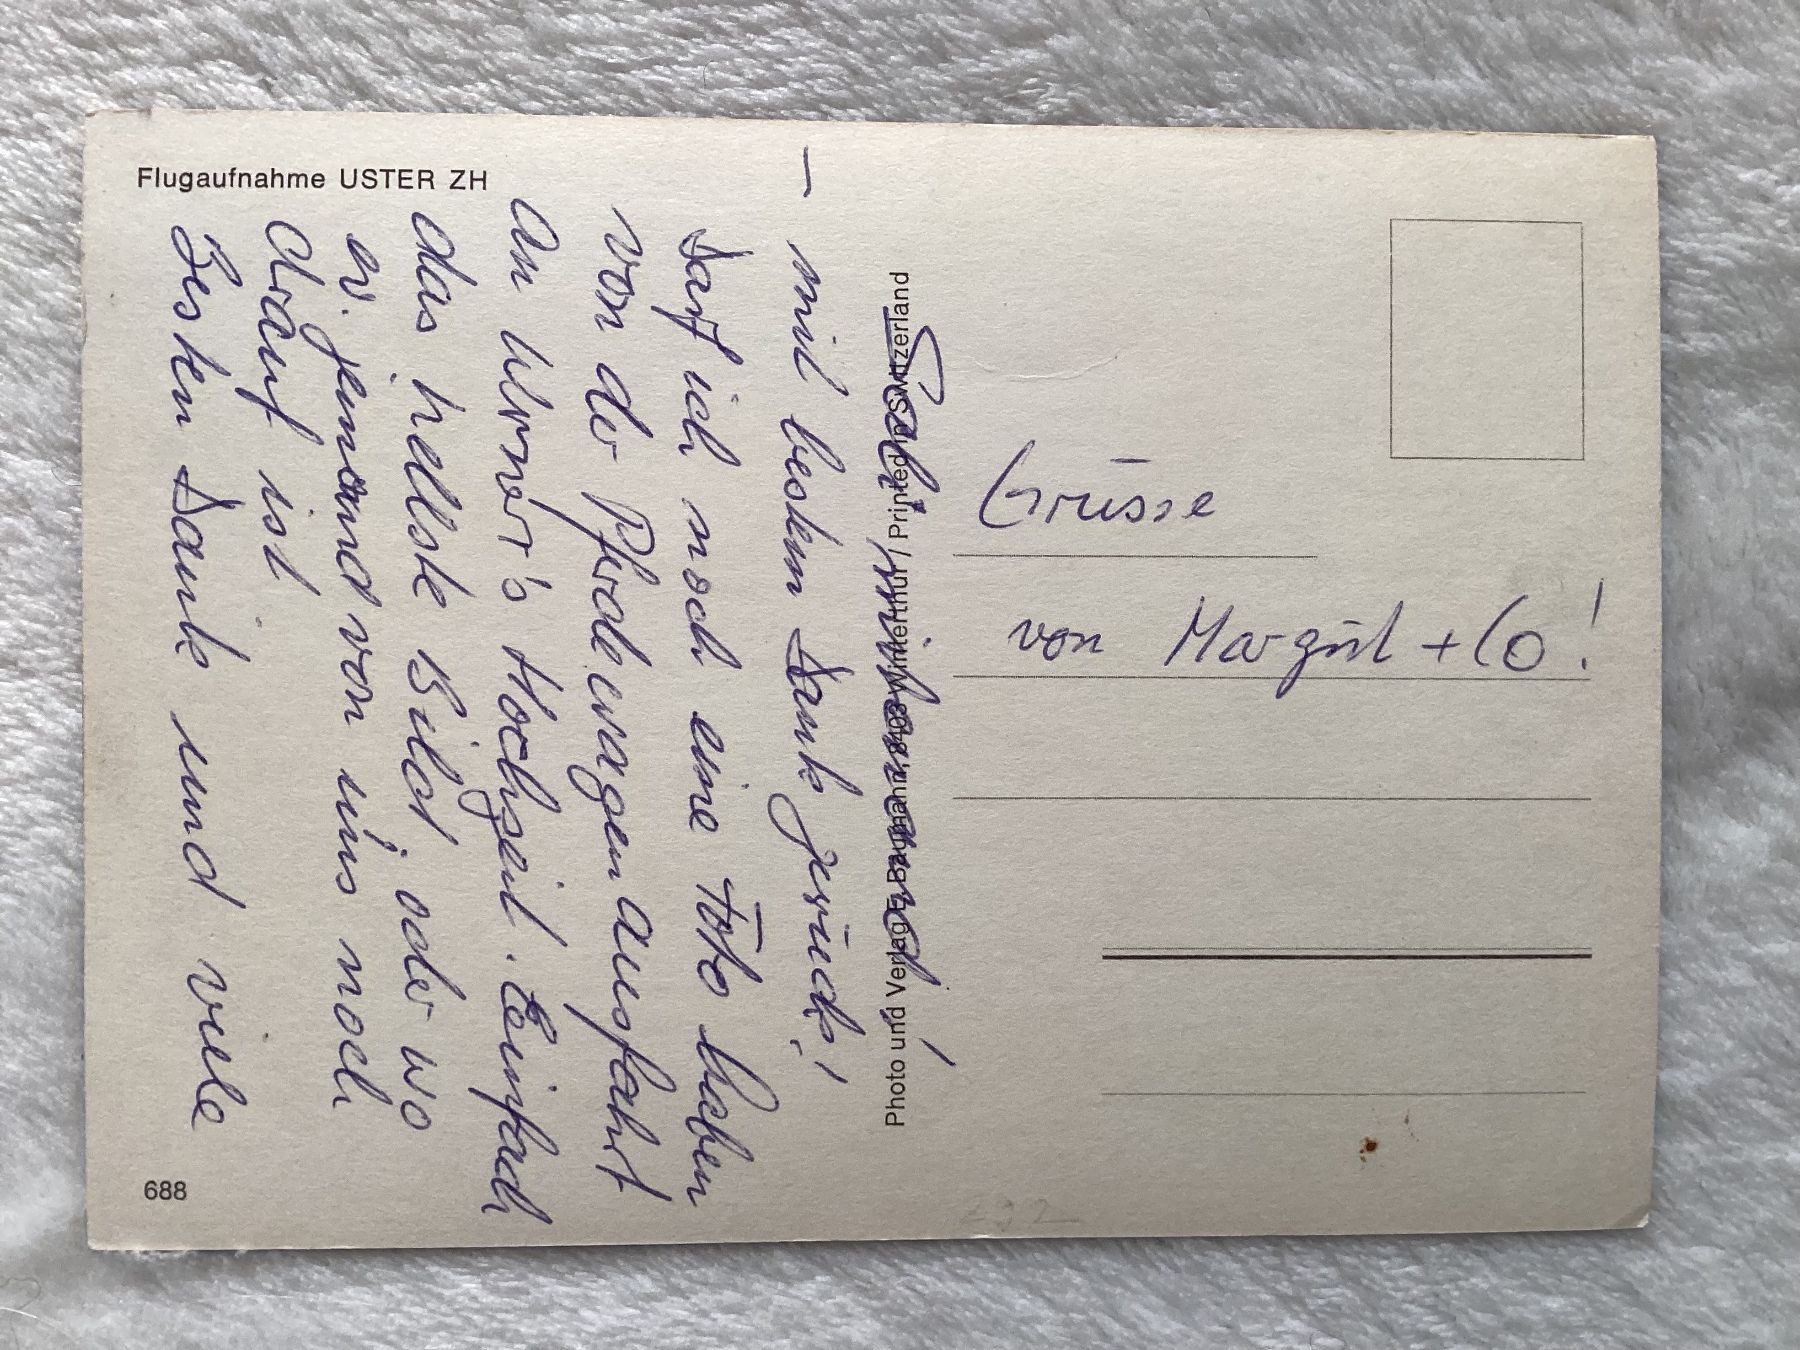 Flugaufnahme USTER ZH
Sali mitenand!
– mit bestem Dank zurück!
Darf ich noch eine Foto haben
von der Pferdewagenausfahrt
an Werner's Hochzeit. Einfach
das hellste Bild, oder wo
ev. jemand von uns noch
drauf ist
Besten Dank und viele
Grüsse
von Margrit + Co!
Photo und Verlag E. Baumann, 8403 Winterthur / Printed in Switzerland
688